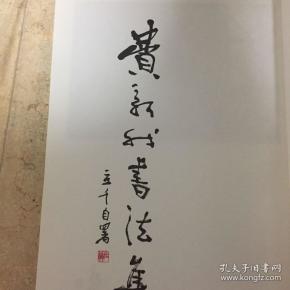 費新我書法集
立千自署
孔夫子旧书网